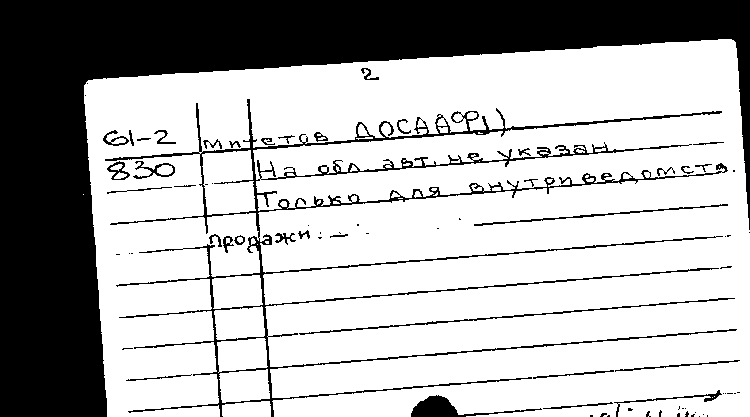 2
61-2 митетов ДОСААФ)
830 На обл. авт. не указан.
Только для внутриведомств.
продажи. —